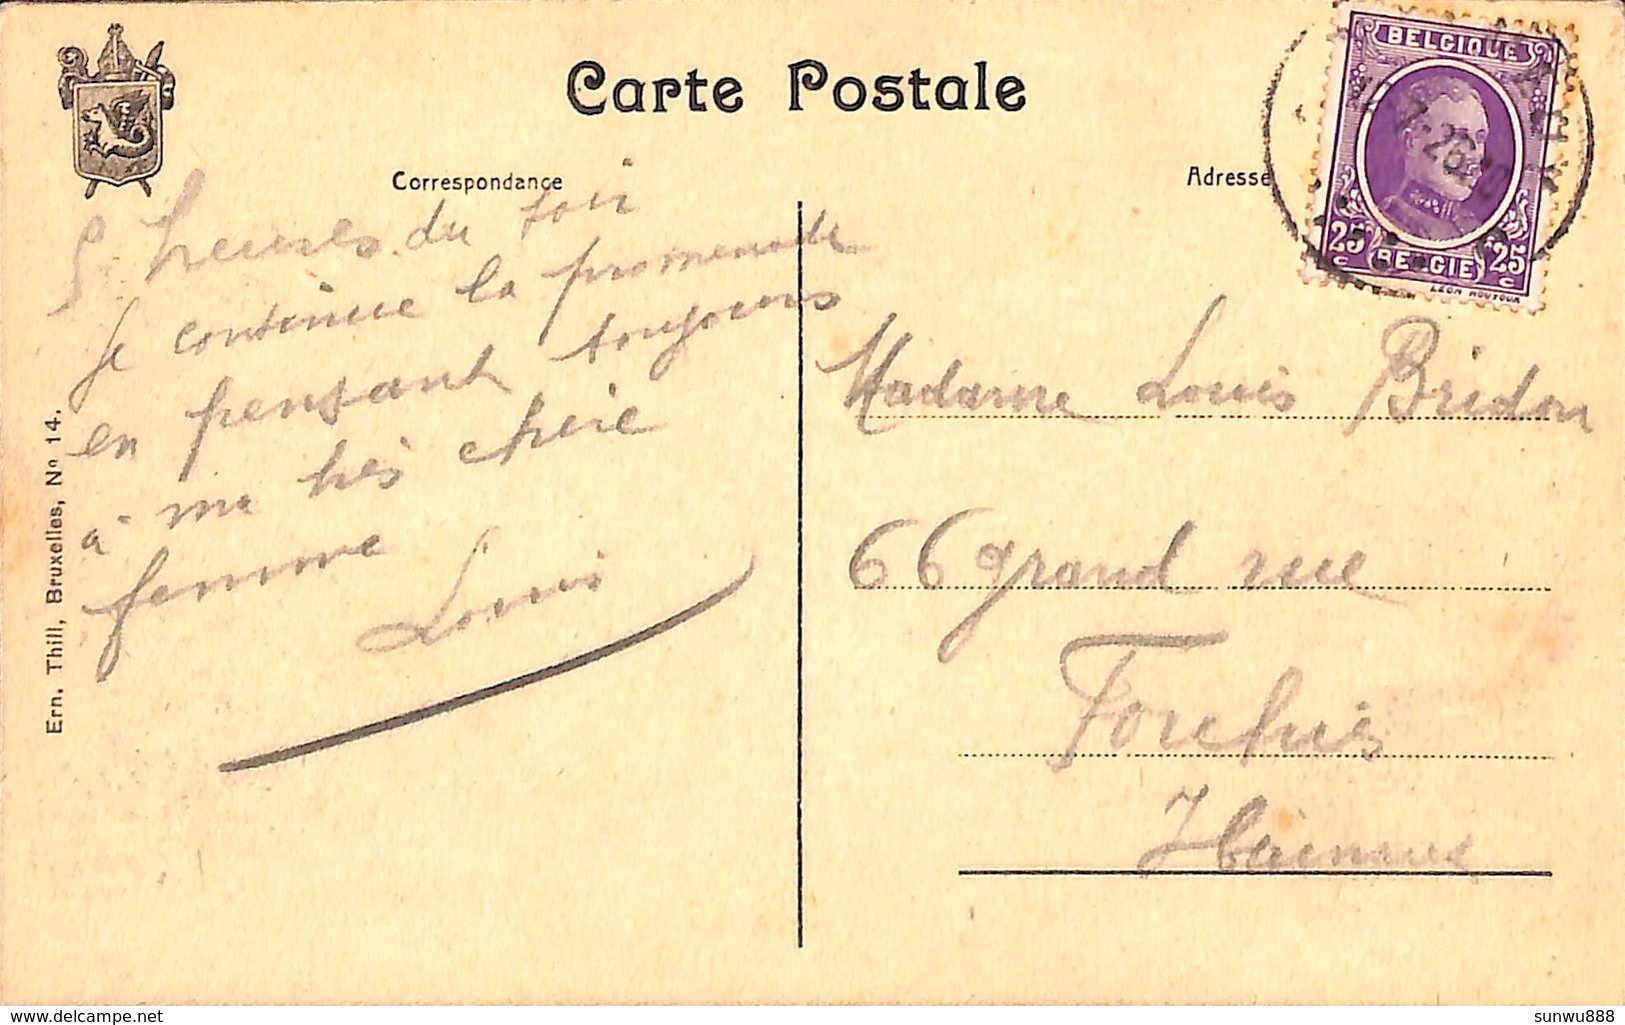 Carte Postale
Correspondance
Adresse
BELGIQUE
25 c
BELGIE
25 c
LÉON HOUYOUX
7-26
5 heures du soir
Je continue la promenade
en pensant toujours
à ma très chérie
femme
Louis
Madame Louis Bridon
66 grand rue
Forchies
Hainaut
Ern. Thill, Bruxelles, No 14.
www.delcampe.net
sunwu888